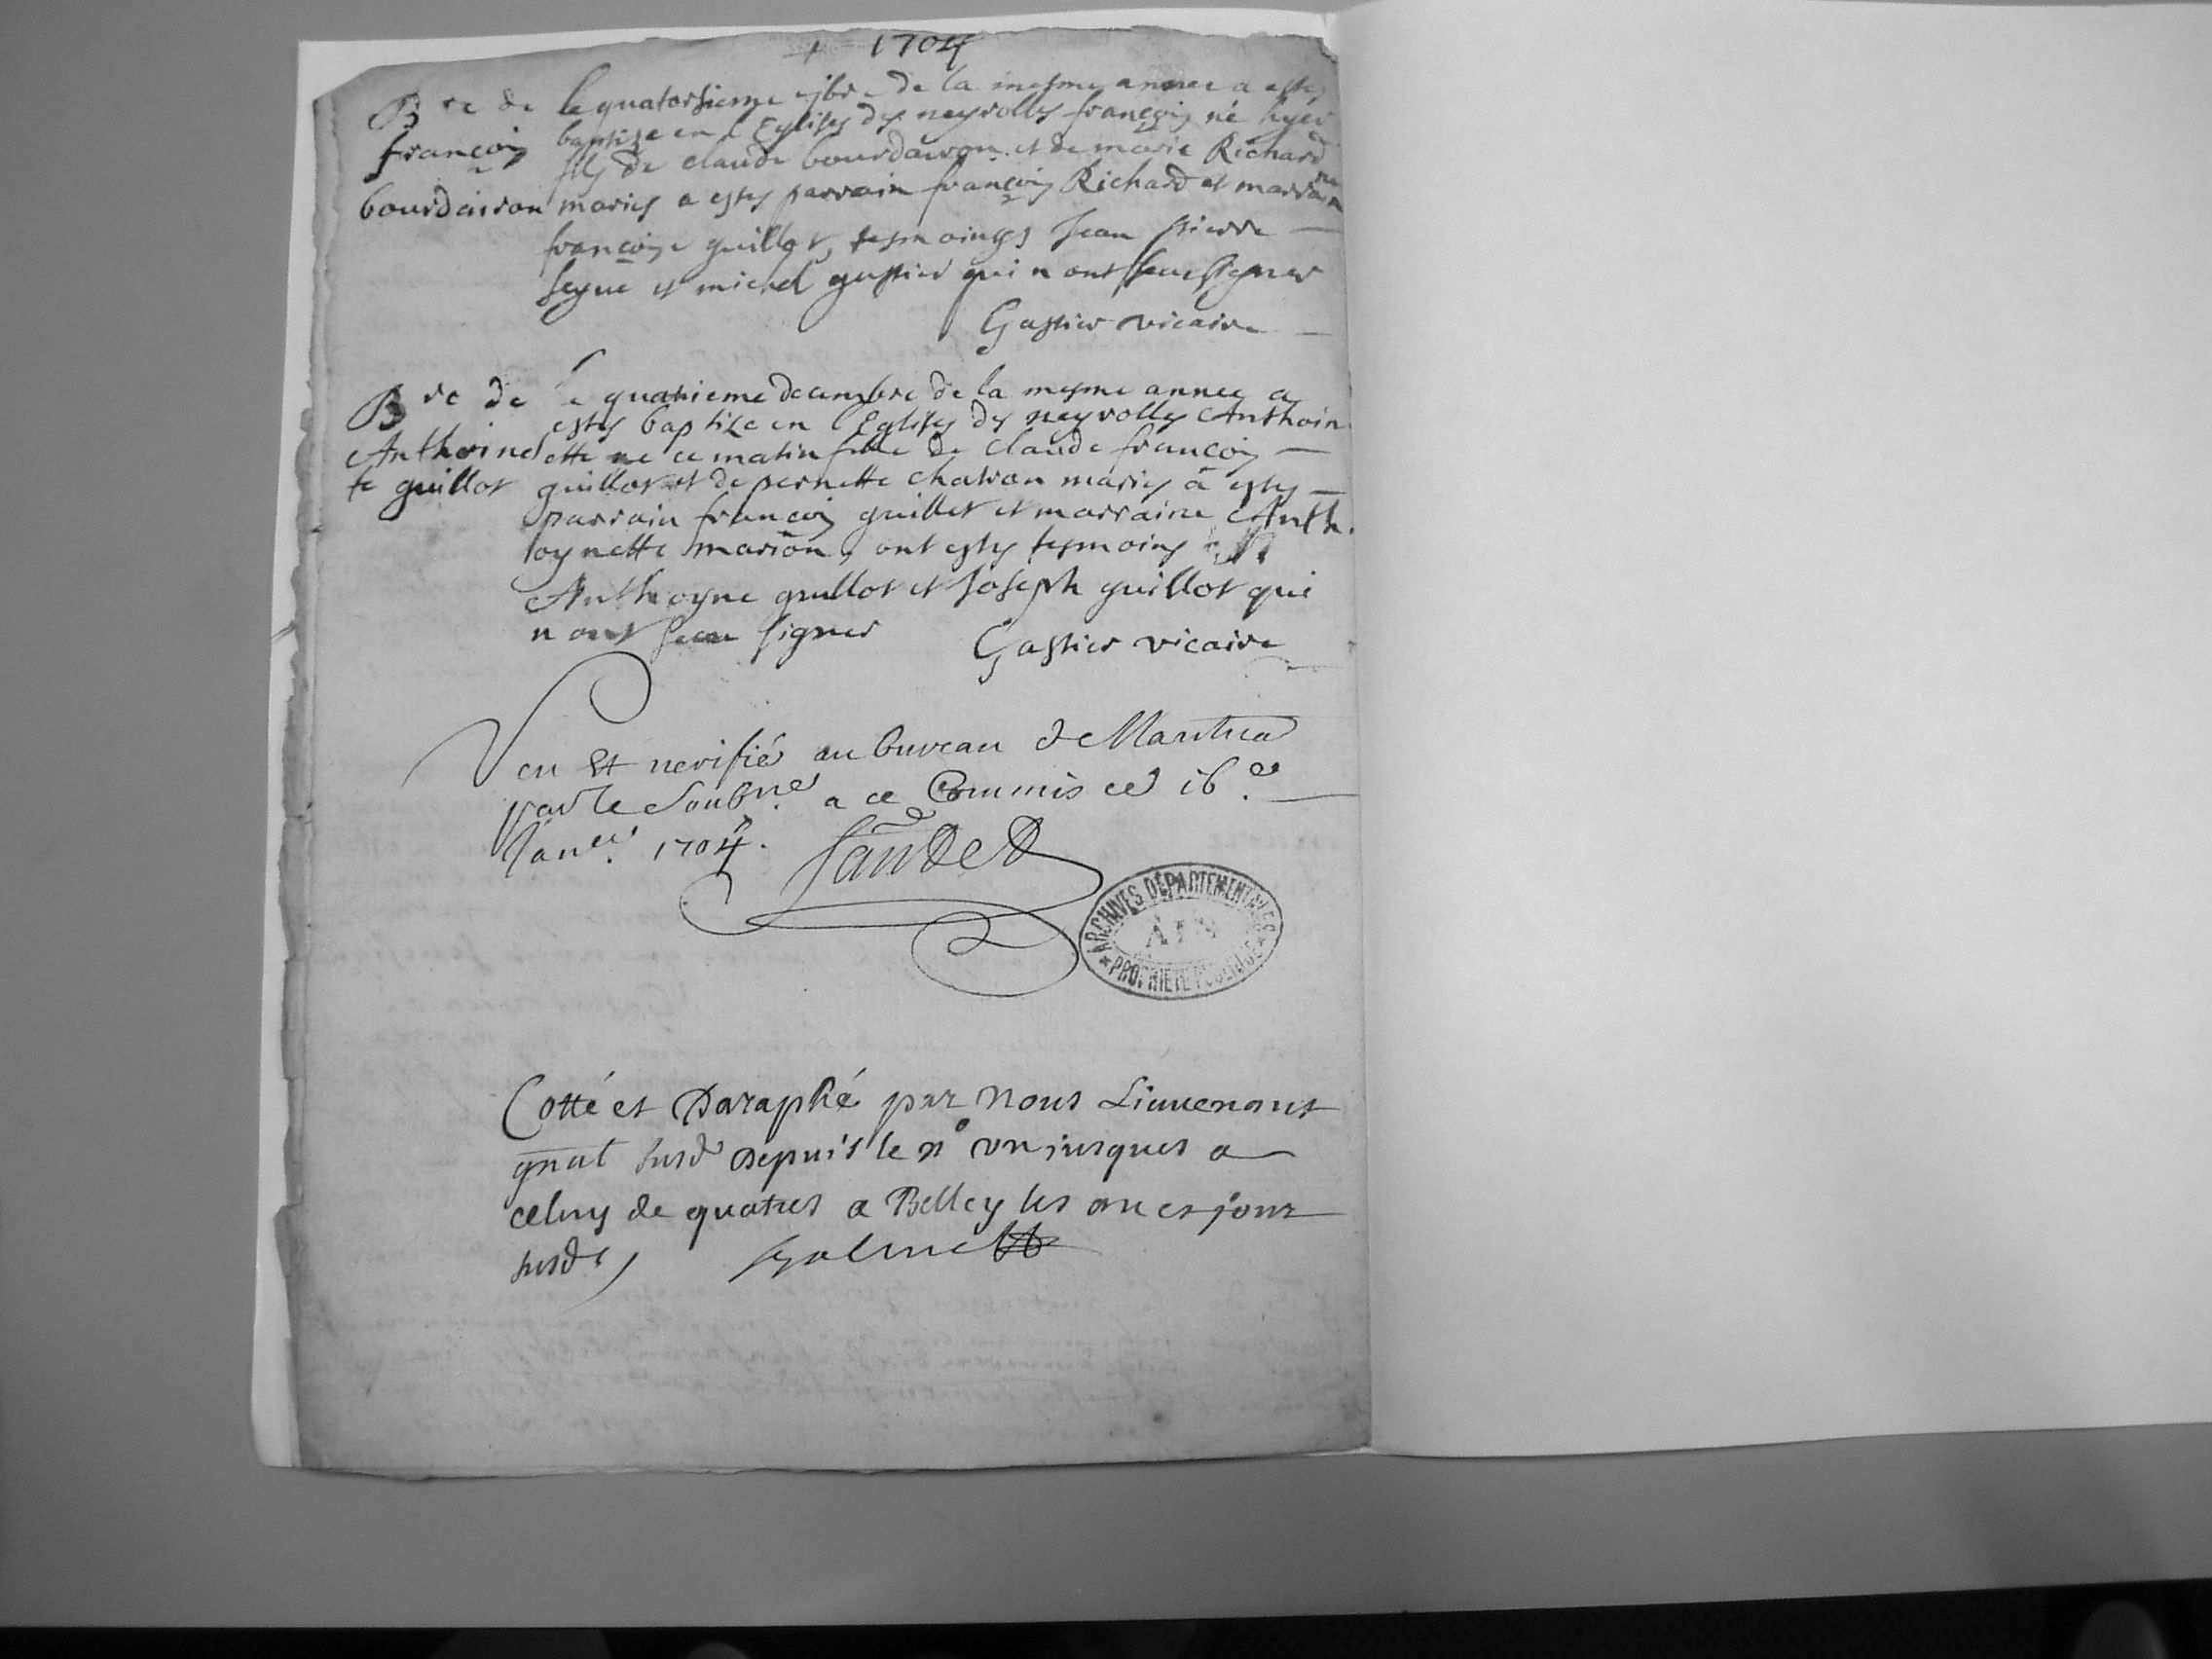 1704
Bre de
françois
bourdairon
Le quatorsieme de la mesme annee a este
baptize en l Eglises des neyrolles françois né hyer
fils de claude bourdairon et de marie Richard
maries a estes parrain françois Richard et marraine
françoise guillot, tesmoings Jean pierre
et michel gastier qui n ont sceu signer
Gastier vicaire
Bre de
Anthoinet
te guillot
Le decembre de la mesme annee a
estes baptize en l Eglises des neyrolles Anthoin
ette ne ce matin fille de claude françois
guillot et de pernette chatron maries a estes
parrain françois guillet et marraine Anth
oynette marion, ont estes tesmoins
Anthoyne guillot et Joseph guillot qui
n ont sceu signer
Gastier vicaire
Veu Et verifié au bureau de Nantua
par le Soubne. a ce Commis ce 16.e
Janer. 1704.
ARCHIVES DÉPARTEMENTALES
AIN
* PROPRIÉTÉ PUBLIQUE *
Cotté et Paraphé par Nous Lieutenant
gnal susd Depuis le no un jusques a
celuy de quatres a Belley les an et jour
susds